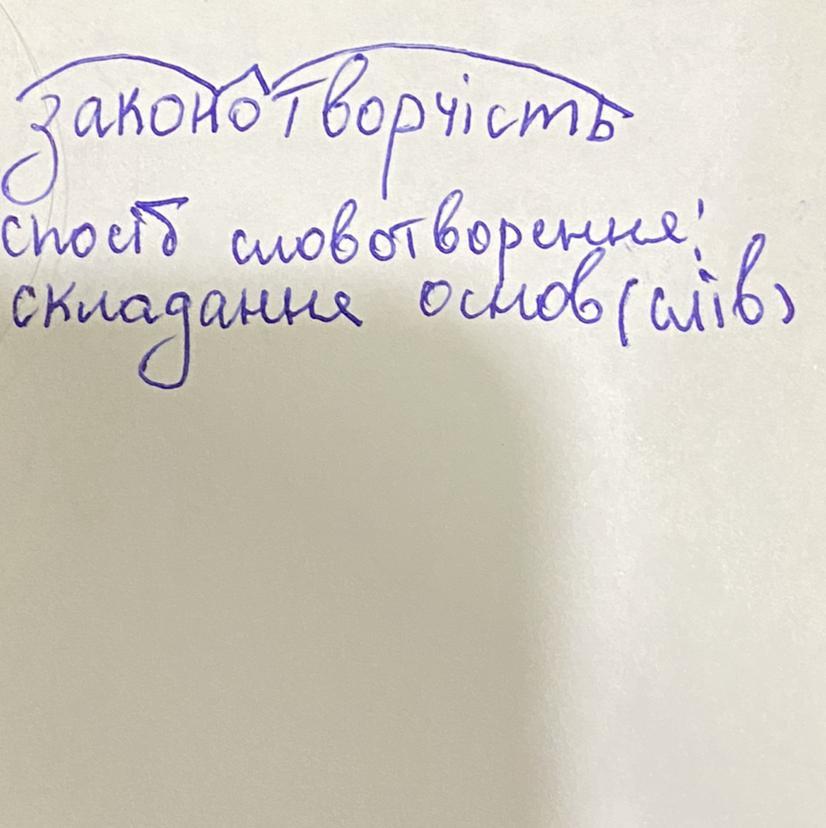 законотворчість
спосіб словотворення:
складання основ (слів)